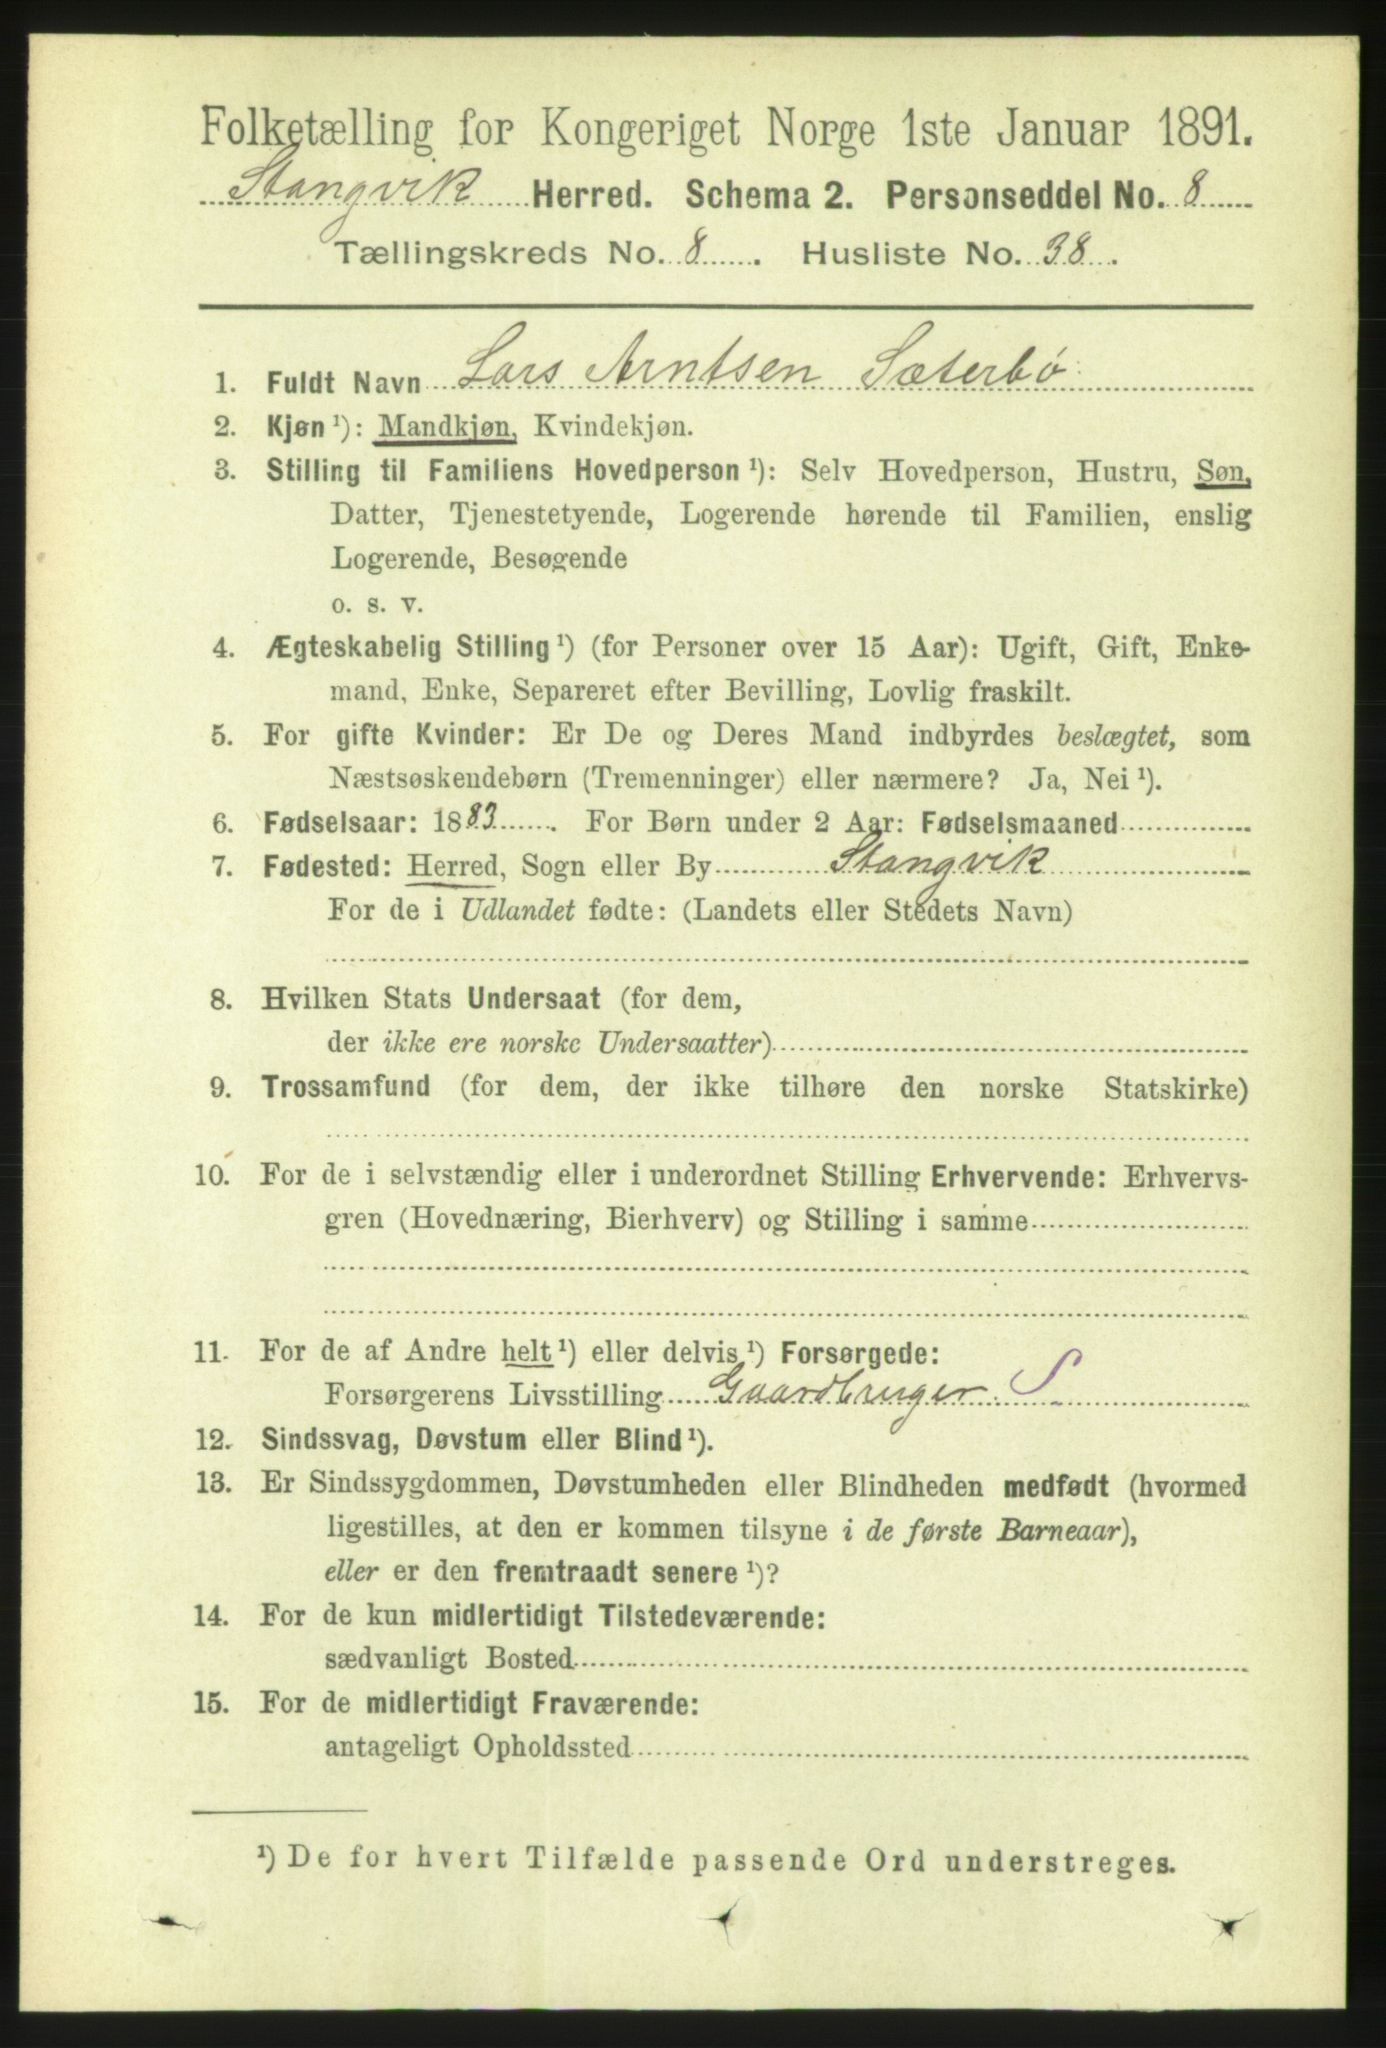 Folketælling for Kongeriget Norge 1ste Januar 1891.
Stangvik Herred. Schema 2. Personseddel No. 8
Tællingskreds No. 8. Husliste No. 38.
1. Fuldt Navn Lars Arntsen Sæterbø
2. Kjøn ¹): Mandkjøn, Kvindekjøn.
3. Stilling til Familiens Hovedperson ¹): Selv Hovedperson, Hustru, Søn,
Datter, Tjenestetyende, Logerende hørende til Familien, enslig
Logerende, Besøgende
o. s. v.
4. Ægteskabelig Stilling ¹) (for Personer over 15 Aar): Ugift, Gift, Enke-
mand, Enke, Separeret efter Bevilling, Lovlig fraskilt.
5. For gifte Kvinder: Er De og Deres Mand indbyrdes beslægtet, som
Næstsøskendebørn (Tremenninger) eller nærmere? Ja, Nei ¹).
6. Fødselsaar: 1883. For Børn under 2 Aar: Fødselsmaaned
7. Fødested: Herred, Sogn eller By Stangvik
For de i Udlandet fødte: (Landets eller Stedets Navn)
8. Hvilken Stats Undersaat (for dem,
der ikke ere norske Undersaatter)
9. Trossamfund (for dem, der ikke tilhøre den norske Statskirke)
10. For de i selvstændig eller i underordnet Stilling Erhvervende: Erhvervs-
gren (Hovednæring, Bierhverv) og Stilling i samme
11. For de af Andre helt ¹) eller delvis ¹) Forsørgede:
Forsørgerens Livsstilling Gaardbruger S
12. Sindssvag, Døvstum eller Blind ¹).
13. Er Sindssygdommen, Døvstumheden eller Blindheden medfødt (hvormed
ligestilles, at den er kommen tilsyne i de første Barneaar),
eller er den fremtraadt senere ¹)?
14. For de kun midlertidigt Tilstedeværende:
sædvanligt Bosted
15. For de midlertidigt Fraværende:
antageligt Opholdssted
¹) De for hvert Tilfælde passende Ord understreges.